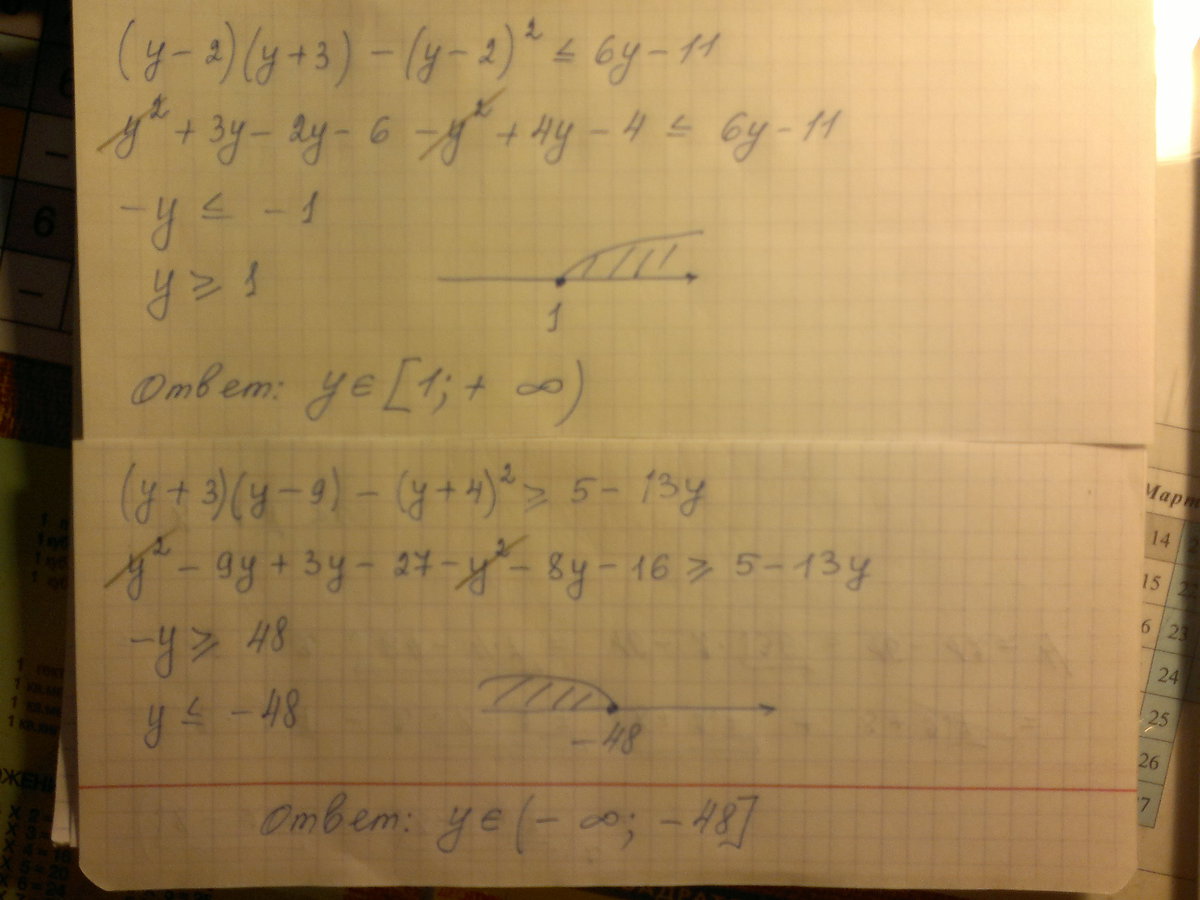 (y-2)(y+3)-(y-2)² ≤ 6y-11
y²+3y-2y-6-y²+4y-4 ≤ 6y-11
-y ≤ -1
y ≥ 1
1
Ответ: y∈[1;+∞)
(y+3)(y-9)-(y+4)² ≥ 5-13y
y²-9y+3y-27-y²-8y-16 ≥ 5-13y
-y ≥ 48
y ≤ -48
-48
Ответ: y∈(-∞;-48]
6
–
6
–
Март
14
15
6 23
24
25
26